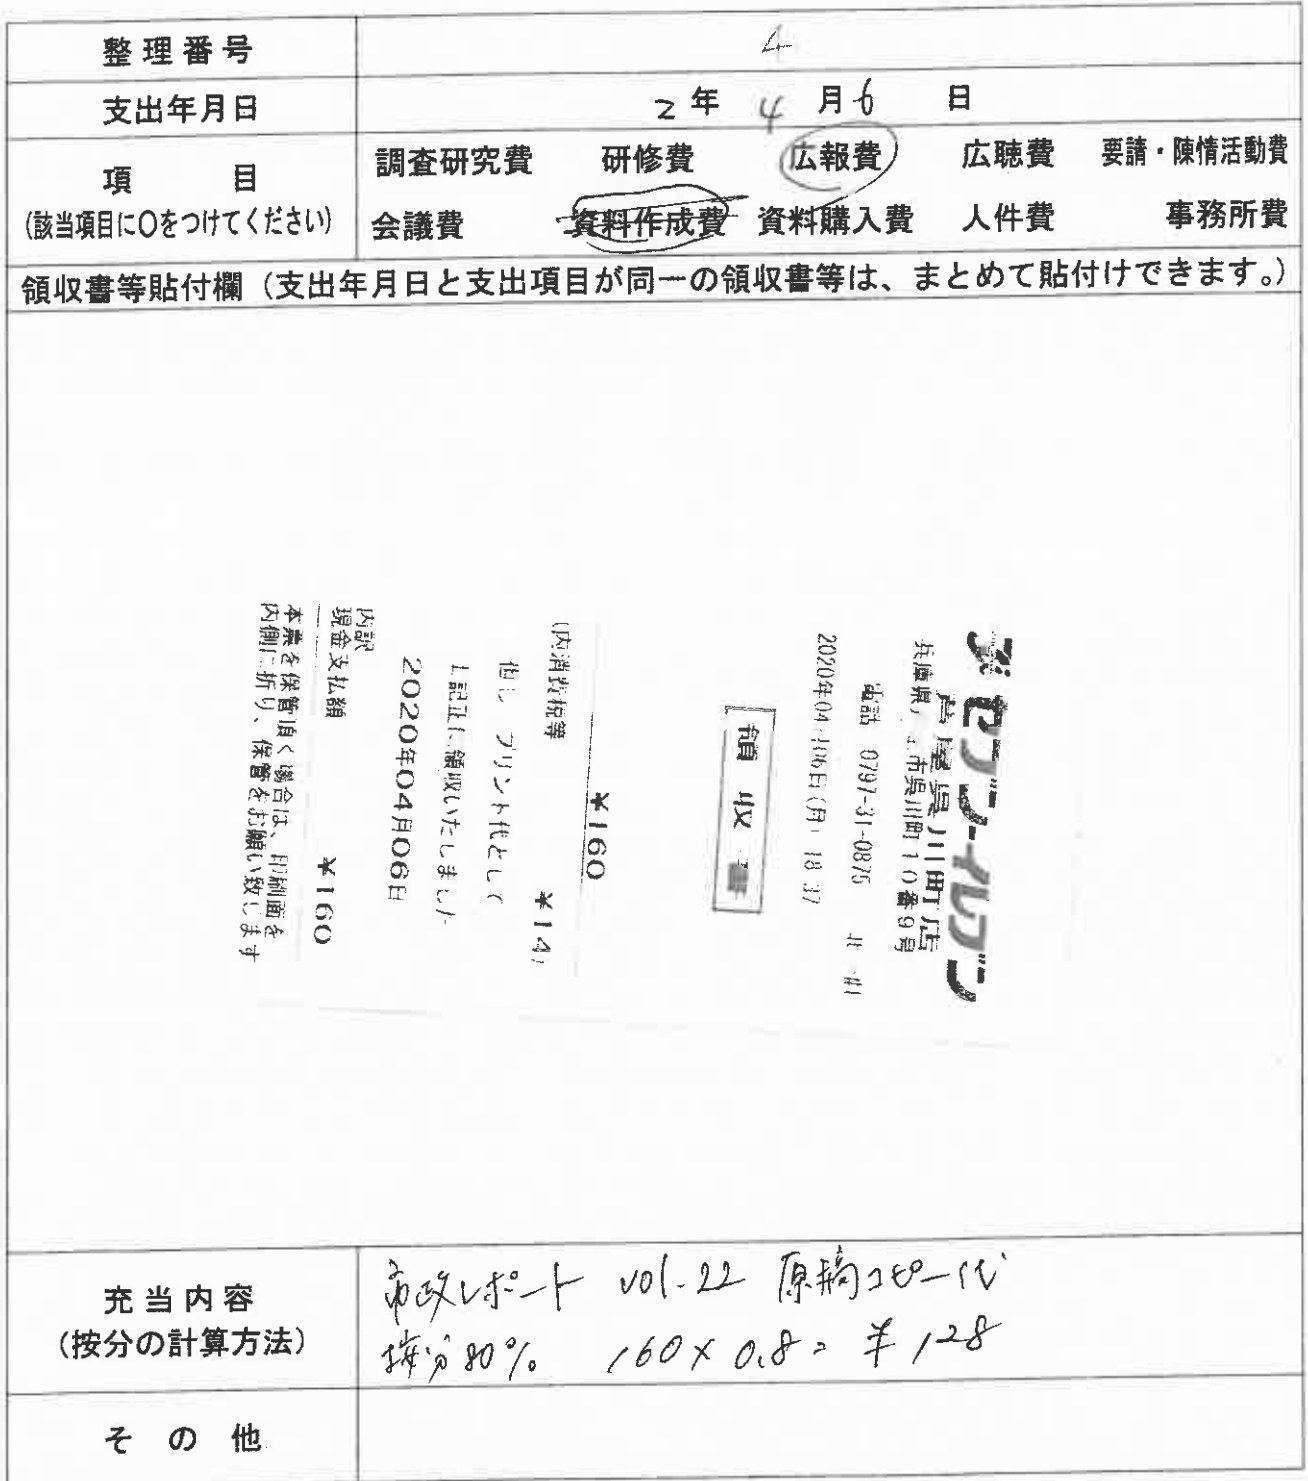 整理番号 4
支出年月日 2年 4月6日
項目
(該当項目に〇をつけてください)
調査研究費 研修費 広報費 広聴費 要請・陳情活動費
会議費 資料作成費 資料購入費 人件費 事務所費
領収書等貼付欄(支出年月日と支出項目が同一の領収書等は、まとめて貼付けできます。)
セブン-イレブン
芦屋呉川町店
兵庫県 市呉川町10番9号
電話 0797-31-0875
2020年04月06日(月) 18:37
領収書
¥160
(内消費税等 ¥14)
但し プリント代として
上記正に領収いたしました
2020年04月06日
内訳
現金支払額 ¥160
本票を保管頂く場合は、印刷面を
内側に折り、保管をお願い致します
充当内容
(按分の計算方法)
市政レポート vol.22 原稿コピー代
按分80% 160×0.8=¥128
その他